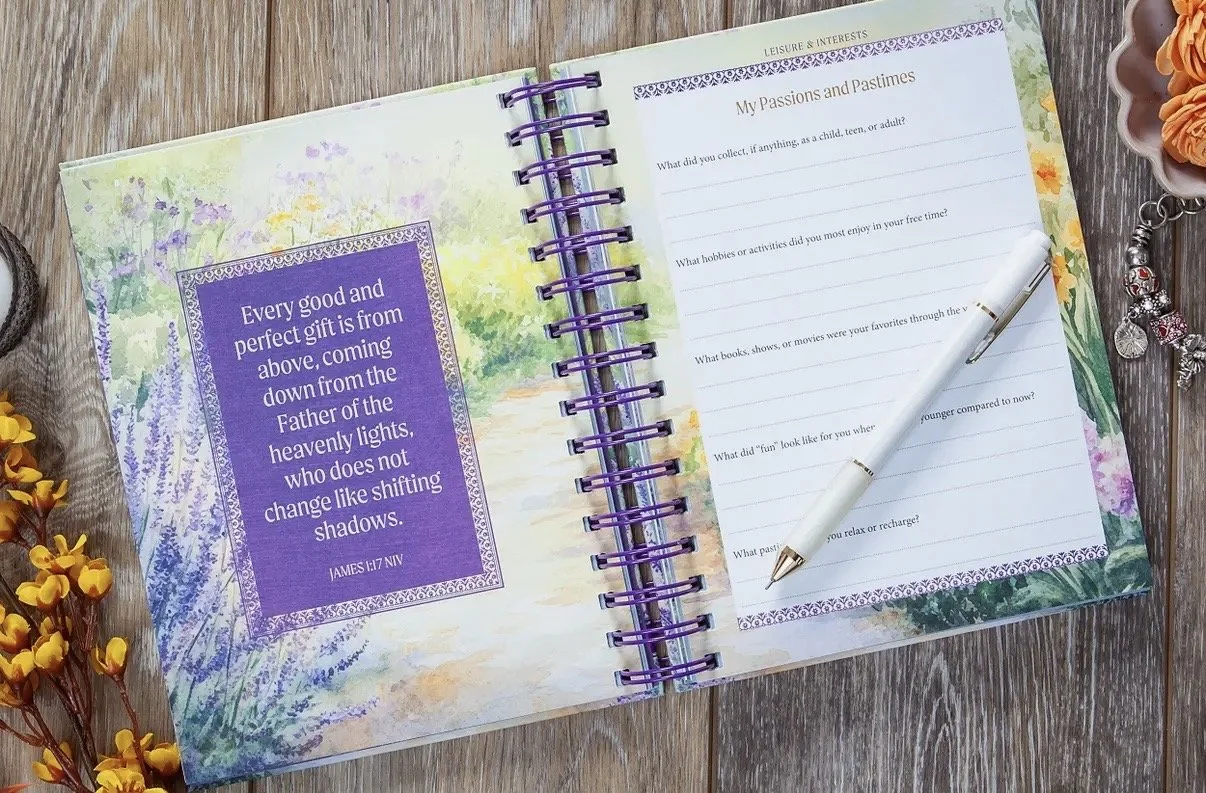 Every good and
perfect gift is from
above, coming
down from the
Father of the
heavenly lights,
who does not
change like shifting
shadows.
JAMES 1:17 NIV
LEISURE & INTERESTS
My Passions and Pastimes
What did you collect, if anything, as a child, teen, or adult?
What hobbies or activities did you most enjoy in your free time?
What books, shows, or movies were your favorites through the
What did "fun" look like for you when younger compared to now?
What you relax or recharge?